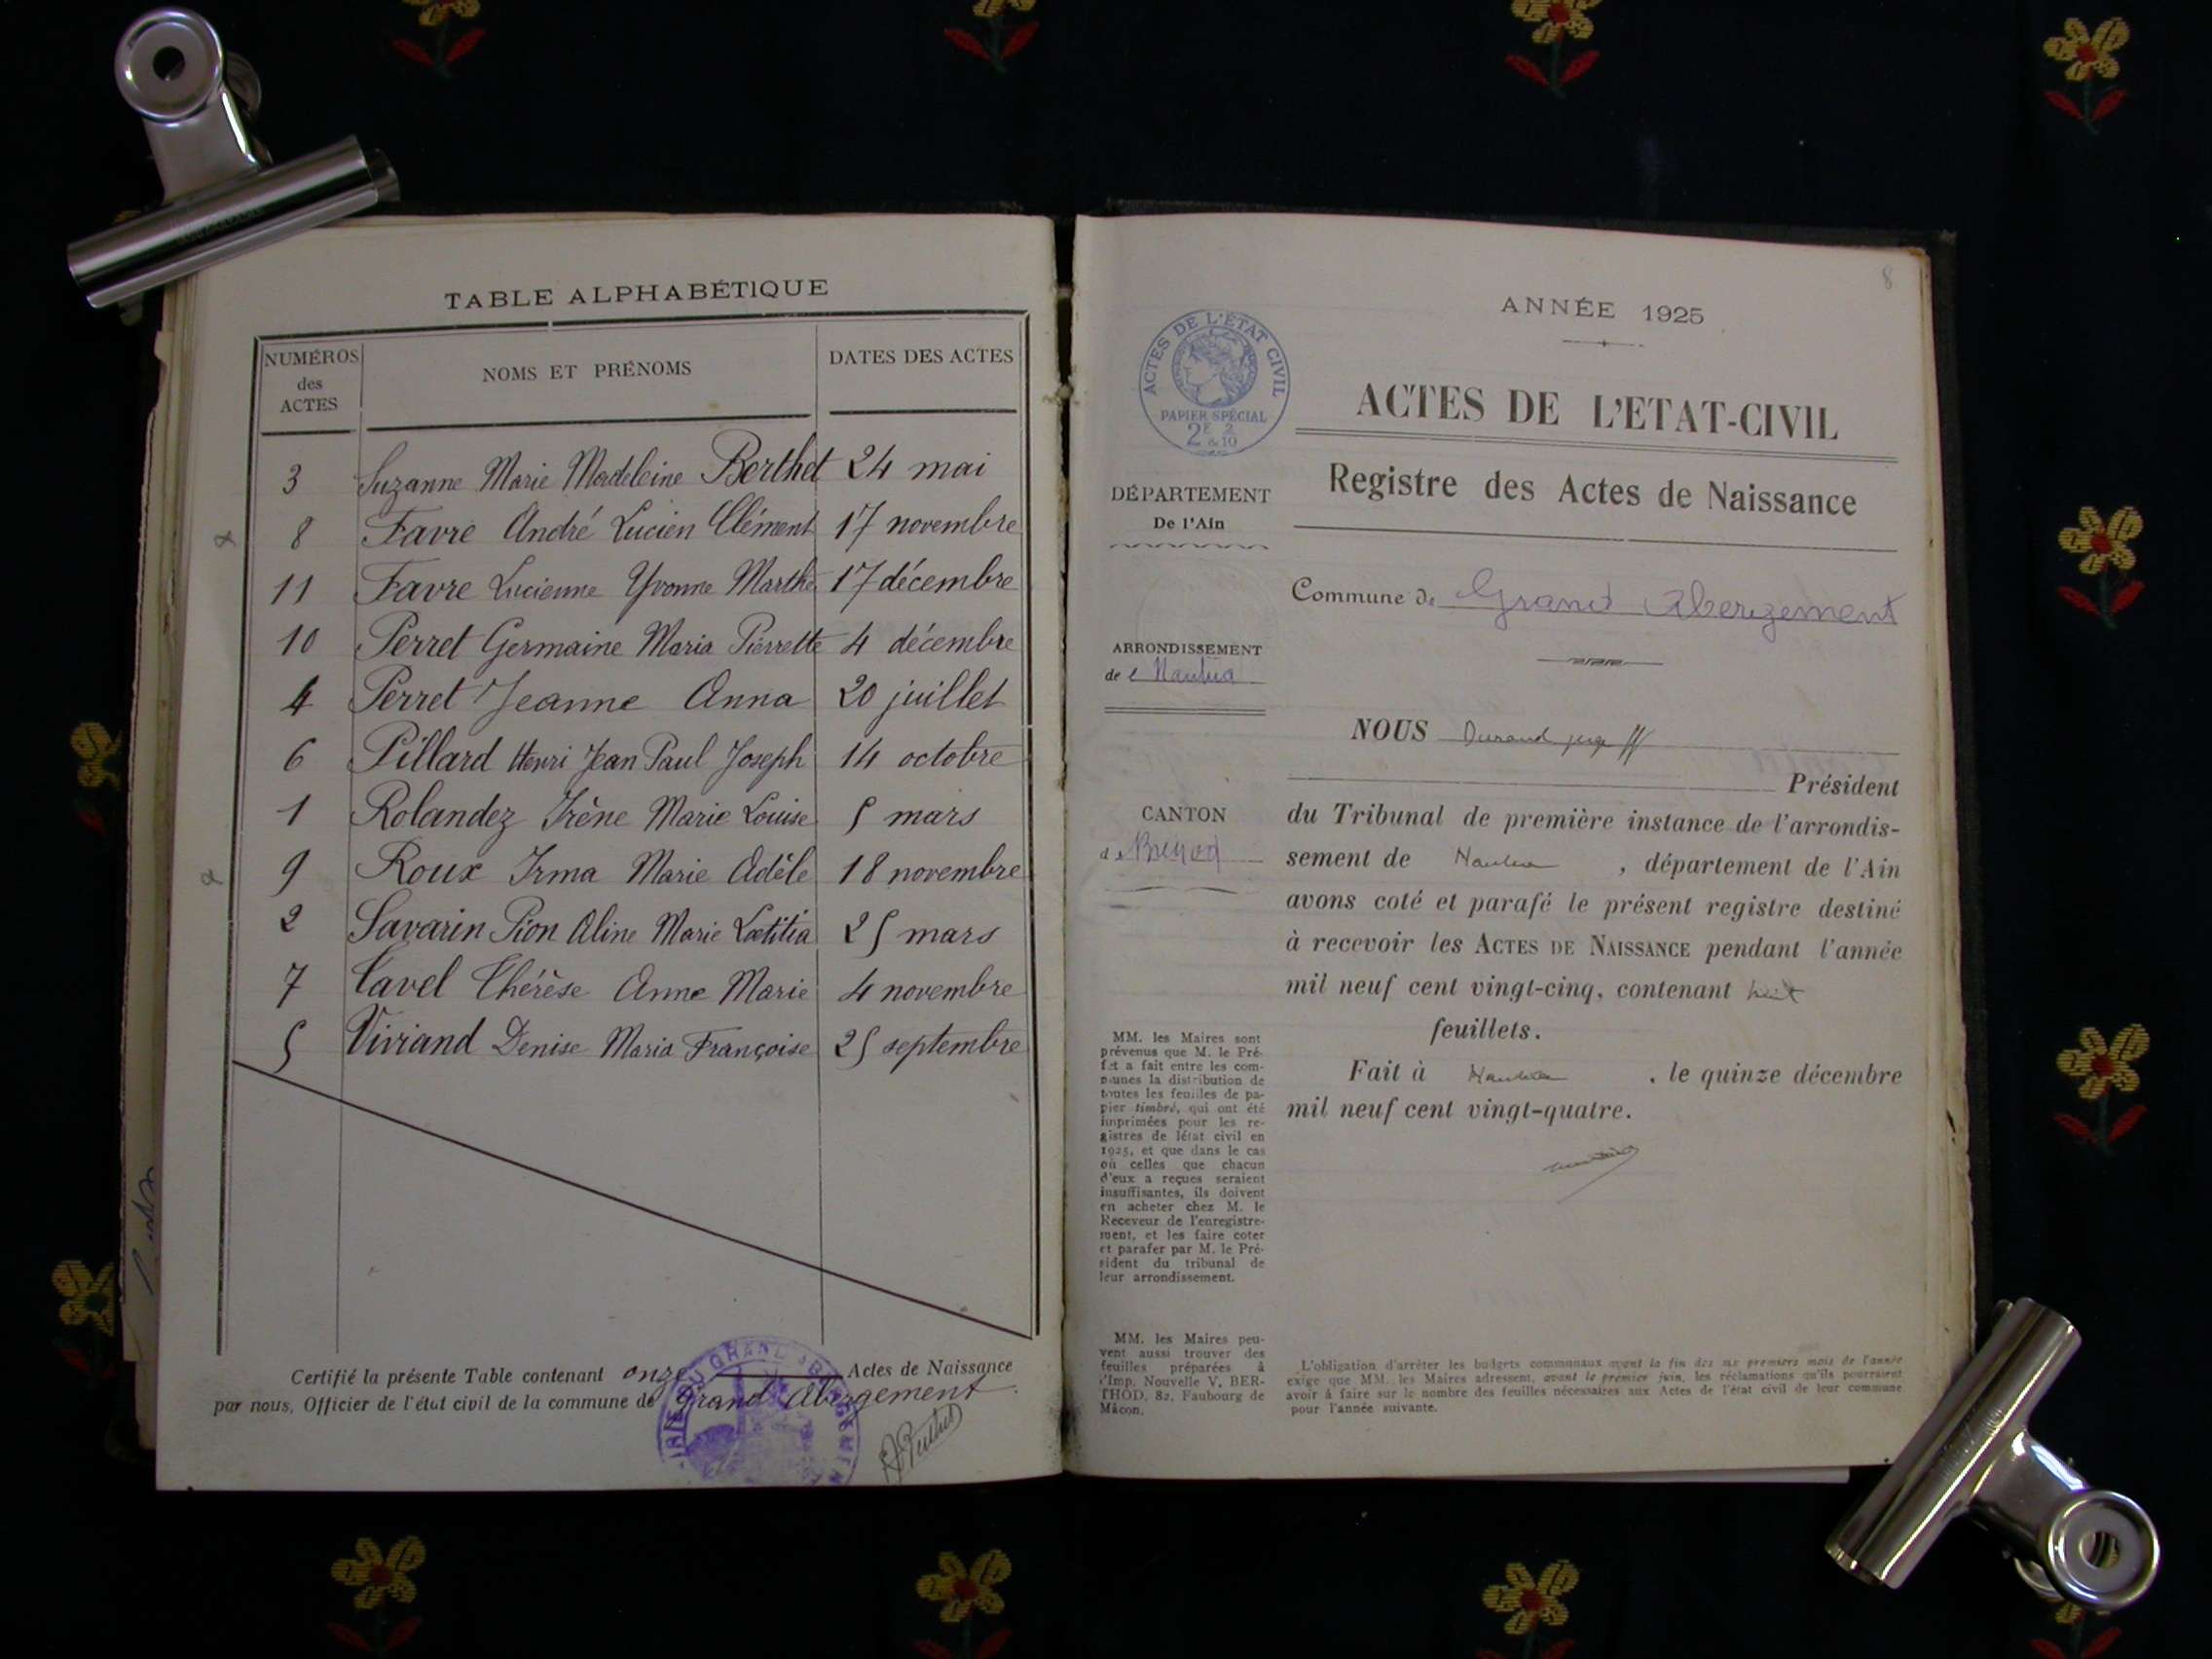 TABLE ALPHABÉTIQUE
NUMÉROS des ACTES
NOMS ET PRÉNOMS
DATES DES ACTES
3 Suzanne Marie Madeleine Berthet 24 mai
8 Favre André Lucien Clément 17 novembre
11 Favre Lucienne Yvonne Marthe 17 décembre
10 Perret Germaine Maria Pierrette 4 décembre
4 Perret Jeanne Anna 20 juillet
6 Pillard Henri Jean Paul Joseph 14 octobre
1 Rolandez Irène Marie Louise 5 mars
9 Roux Irma Marie Adèle 18 novembre
2 Savarin Pion Aline Marie Lœtitia 25 mars
7 Tavel Thérèse Anne Marie 4 novembre
5 Viviand Denise Maria Françoise 25 septembre
Certifié la présente Table contenant onze Actes de Naissance
par nous, Officier de l'état civil de la commune de Grand Abergement
8
ANNÉE 1925
ACTES DE L'ÉTAT CIVIL
PAPIER SPÉCIAL
2F 2
& 10
ACTES DE L'ETAT-CIVIL
Registre des Actes de Naissance
DÉPARTEMENT
De l'Ain
Commune de Grand Abergement
ARRONDISSEMENT
de Nantua
NOUS Durand juge ff
Président
CANTON
de Brénod
du Tribunal de première instance de l'arrondis-
sement de Nantua , département de l'Ain
avons coté et parafé le présent registre destiné
à recevoir les ACTES DE NAISSANCE pendant l'année
mil neuf cent vingt-cinq, contenant huit
feuillets.
Fait à Nantua , le quinze décembre
mil neuf cent vingt-quatre.
MM. les Maires sont
prévenus que M. le Pré-
fet a fait entre les com-
munes la distribution de
toutes les feuilles de pa-
pier timbré, qui ont été
imprimées pour les re-
gistres de létat civil en
1925, et que dans le cas
où celles que chacun
d'eux a reçues seraient
insuffisantes, ils doivent
en acheter chez M. le
Receveur de l'enregistre-
ment, et les faire coter
et parafer par M. le Pré-
sident du tribunal de
leur arrondissement.
MM. les Maires peu-
vent aussi trouver des
feuilles préparées à
l'Imp. Nouvelle V. BER-
THOD, 82, Faubourg de
Mâcon.
L'obligation d'arrêter les budgets communaux avant la fin des six premiers mois de l'année
exige que MM. les Maires adressent, avant le premier juin, les réclamations qu'ils pourraient
avoir à faire sur le nombre des feuilles nécessaires aux Actes de l'état civil de leur commune
pour l'année suivante.